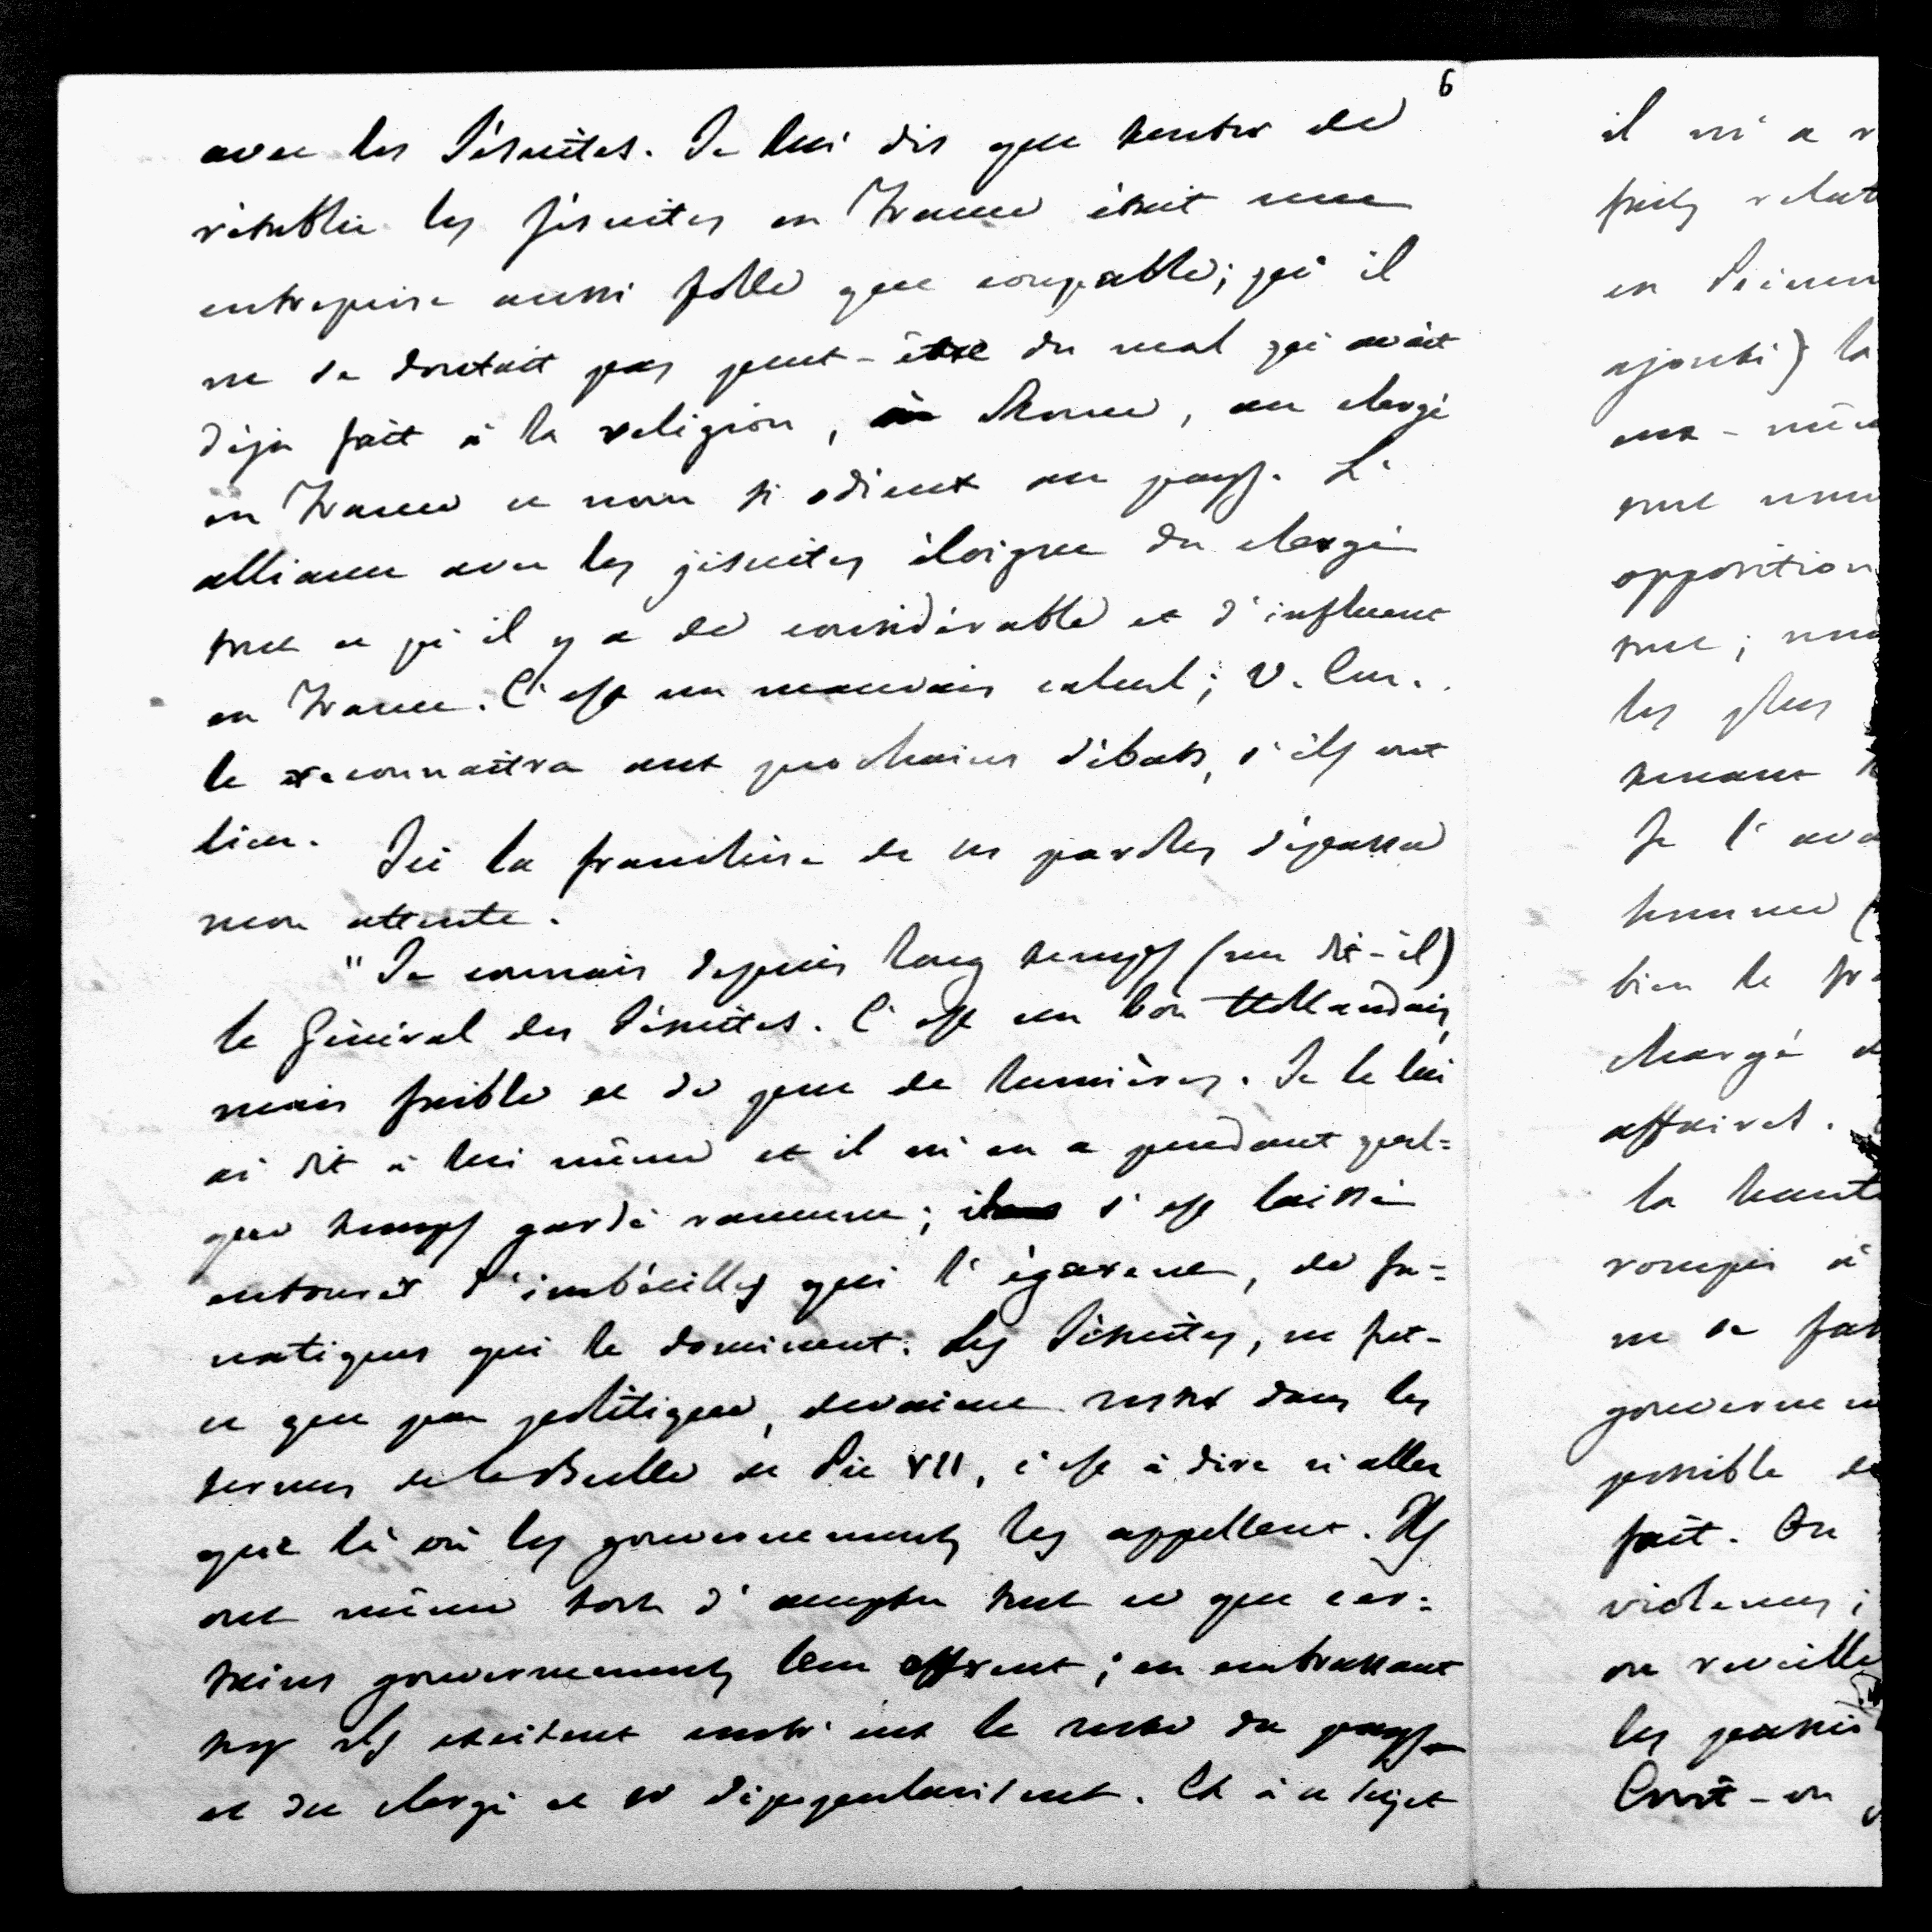 6
avec les Jésuites. Je lui dis que tenter de
rétablir les jésuites en France était une
entreprise aussi folle que coupable; qu'il
ne se doutait pas peut-être du mal qu'avait
déjà fait à la religion, à Rome, au clergé
en France ce nom si odieux au pays. L'
alliance avec les jésuites éloigne du clergé
tout ce qu'il y a de considérable et d'influent
en France. C'est un mauvais calcul; V. Em.
le reconnaîtra aux prochains débats, s'ils ont
lieu. Ici la franchise de ses paroles dépassa
mon attente.
"Je connais depuis long temps (me dit-il)
le Général des Jésuites. C'est un bon Hollandais,
mais faible et de peu de lumières. Je le lui
ai dit à lui même et il m'en a pendant quel=
que temps gardé rancune; il s'est laissé
entourer d'imbécilles qui l'égarent, de fa=
natiques qui le dominent. Les Jésuites, ne fut-
ce que par politique, devaient rester dans les
termes de la Bulle de Pie VII, c'est à dire n'aller
que là où les gouvernements les appellent. Ils
ont même tort d'accepter tout ce que cer=
tains gouvernements leur offrent; en embrassant
trop ils excitent contr'eux le reste du pays
et du clergé et se dépopularisent. Et à ce sujet
il m'a r
faits relat
en
ajouta) la
eux-mê
ont
opposition
tout;
les plus
tenant
Je l'ava
homme (
bien le fr
chargé d
affaires.
la haut
rompu à
ne se fas
gouvernem
possible de
fait. On
violences;
on réveille
les passi
Croit-on